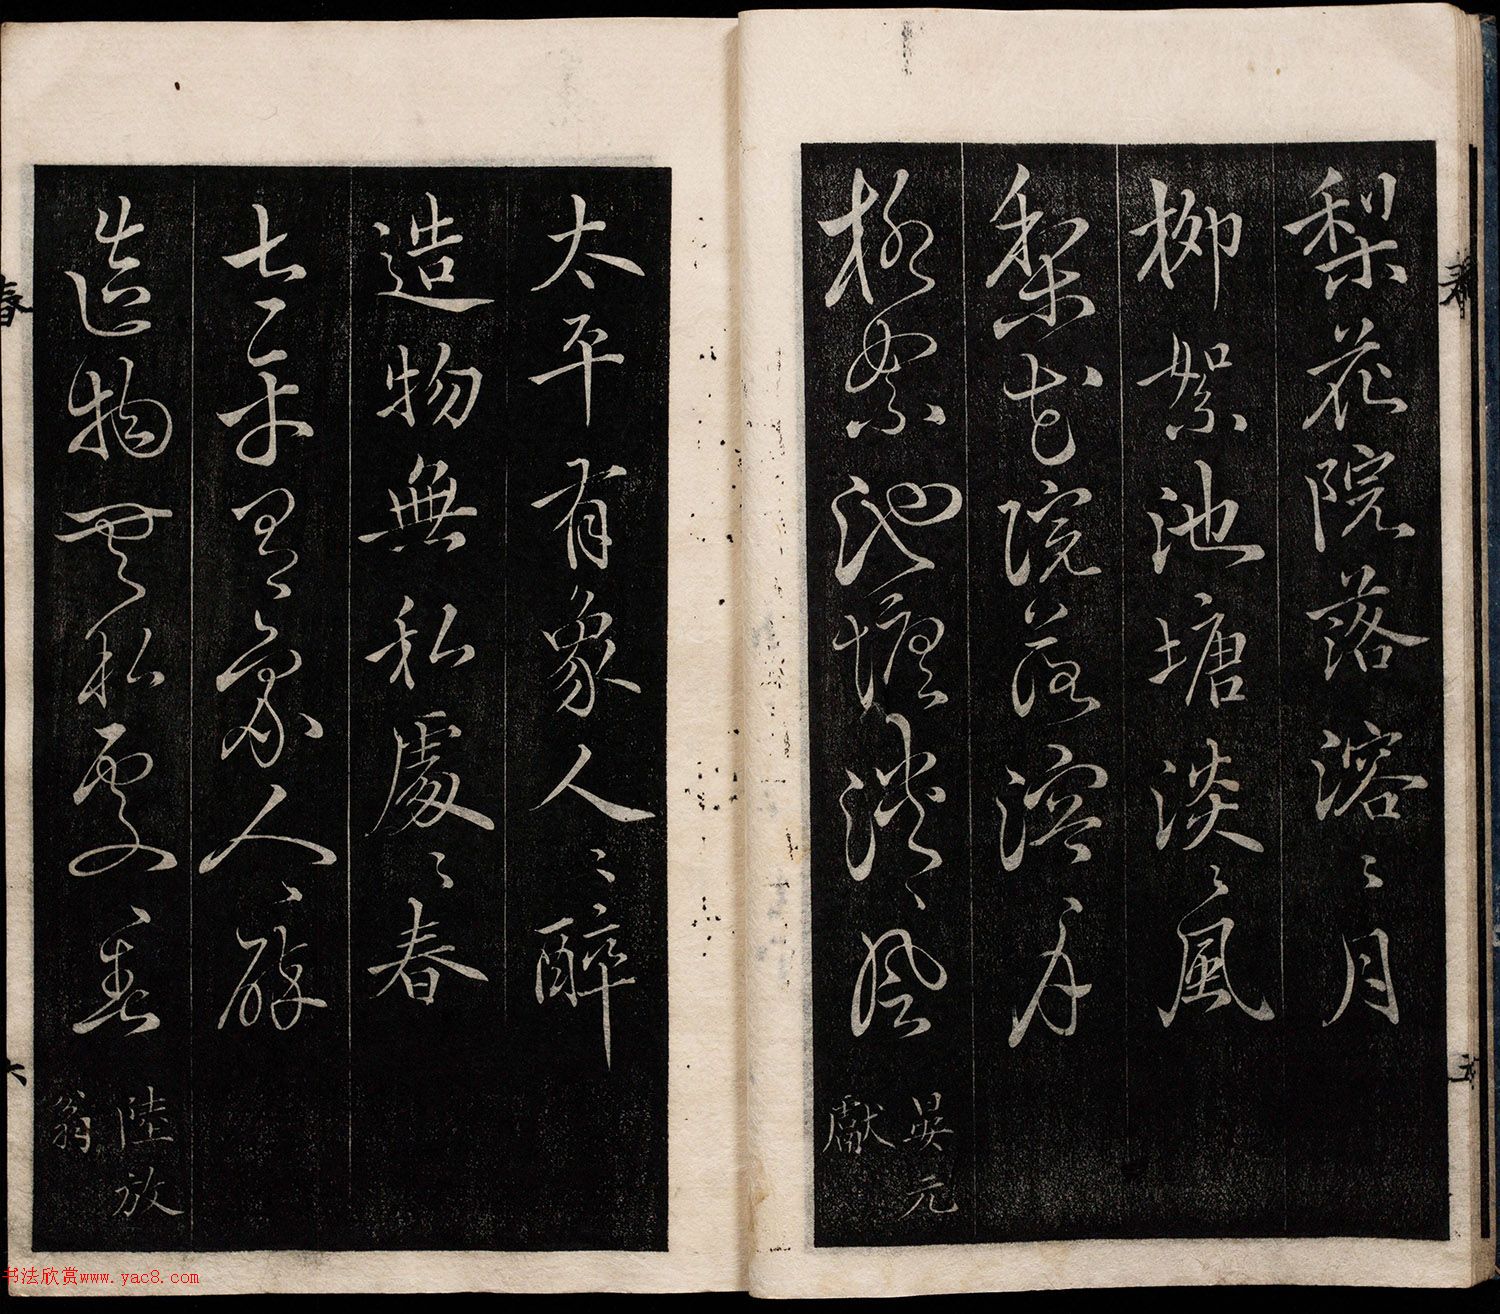 梨花院落溶〻月
柳絮池塘淡〻風
梨花院落溶月
柳絮池塘淡〻風
晏元
獻
太平有象人〻醉
造物無私處〻春
太平有象人〻醉
造物無私處〻春
陸放
翁
春
五
春
六
书法欣赏www.yac8.com